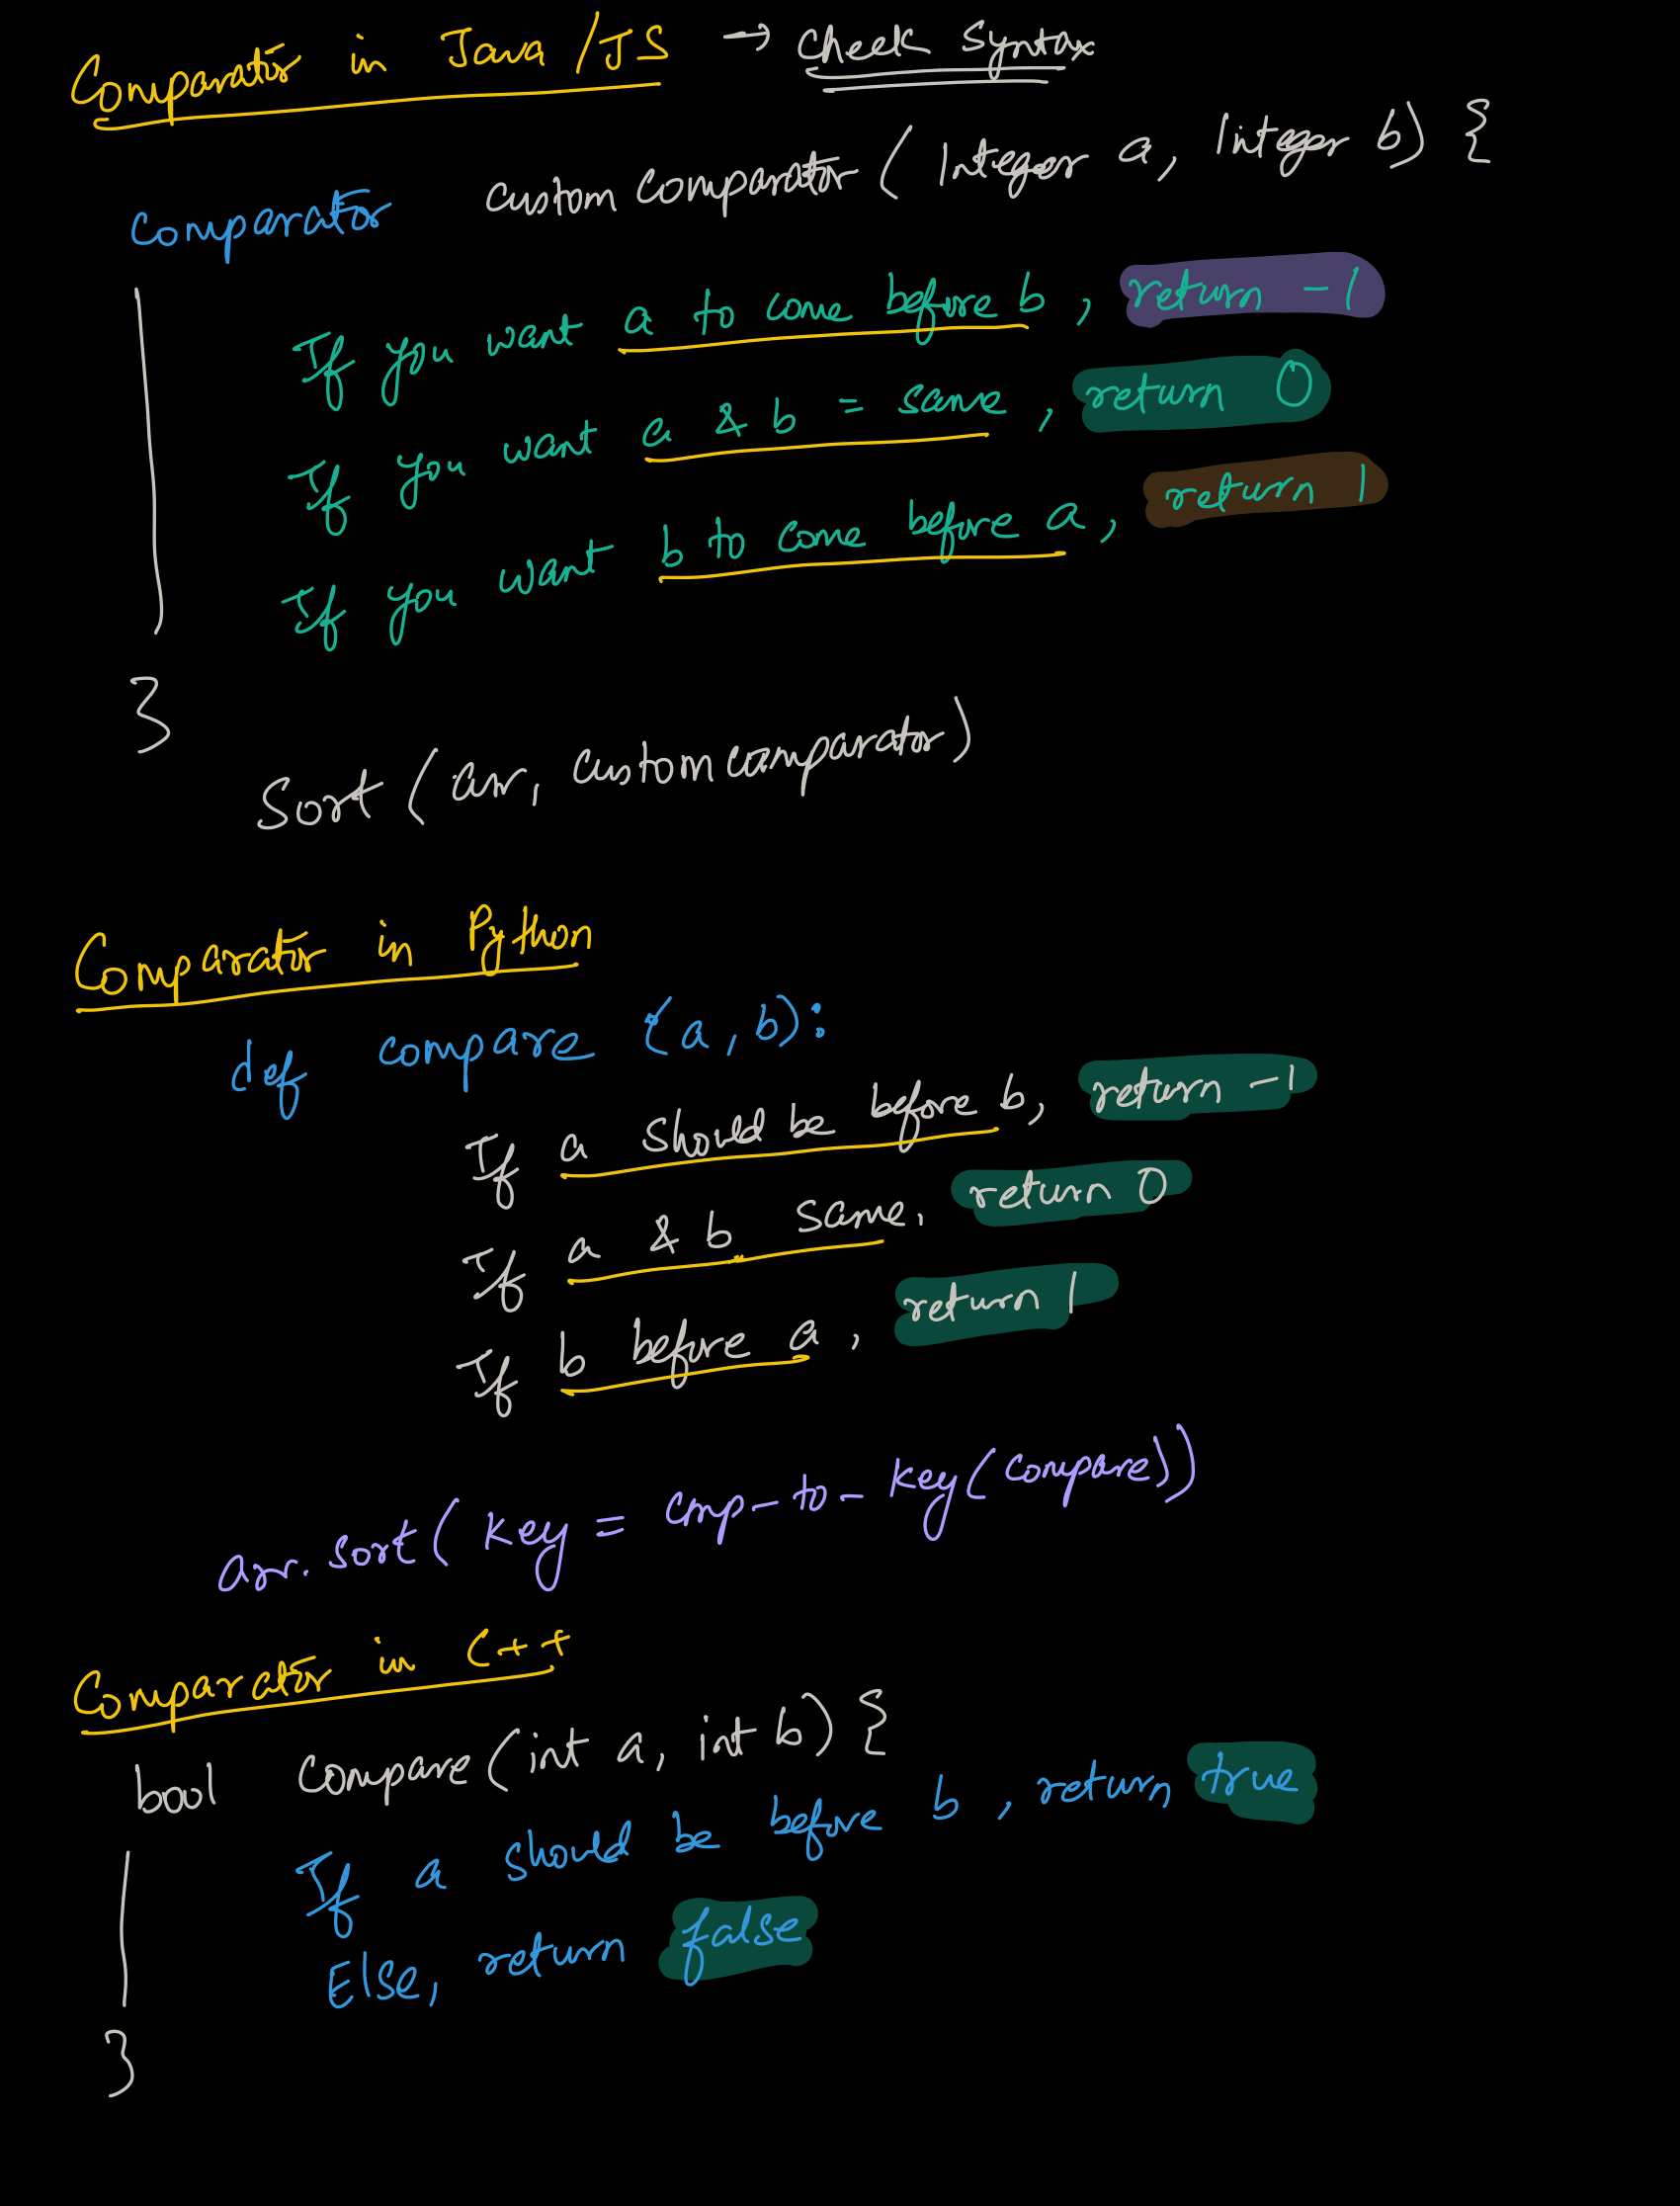 Comparator in Java / JS → Check Syntax
Comparator custom comparator ( Integer a, Integer b) {
If you want a to come before b, return -1
If you want a & b = same, return 0
If you want b to come before a, return 1
}
Sort (arr, custom comparator)
Comparator in Python
def compare (a, b):
If a should be before b, return -1
If a & b same, return 0
If b before a, return 1
arr. sort( key = cmp-to-key(compare))
Comparator in C++
bool compare (int a, int b) {
If a should be before b, return true
Else, return false
}